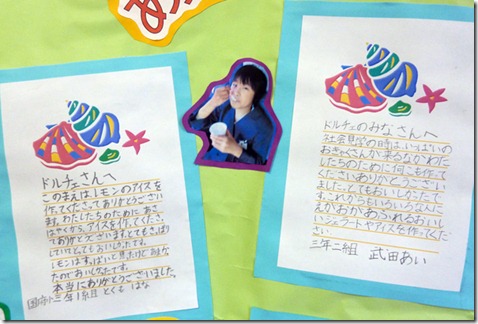 ドルチェさんへ
このまえはレモンのアイスを
作ってくださってありがとうござい
ます。わたしたちのために あさ
はやくから、アイスを作ってくださっ
てありがとうございます。とてもさっぱり
していてとてもおいしかったです。
レモンは すっぱいと思ったけど
たのでおいしかったです。
本当にありがとうございました。
三年1組 とくも はな
ドルチェのみなさんへ
社会見学の時は、いっぱいの
お客さんが来るなかわた
したちのために何こも作って
くださいありがとうござい
ました。とてもおいしかったで
す。これからもいろいろなえ
がおがあふれるおいし
いジェラートやアイスを作ってくだ
さい。
三年二組 武田 あい